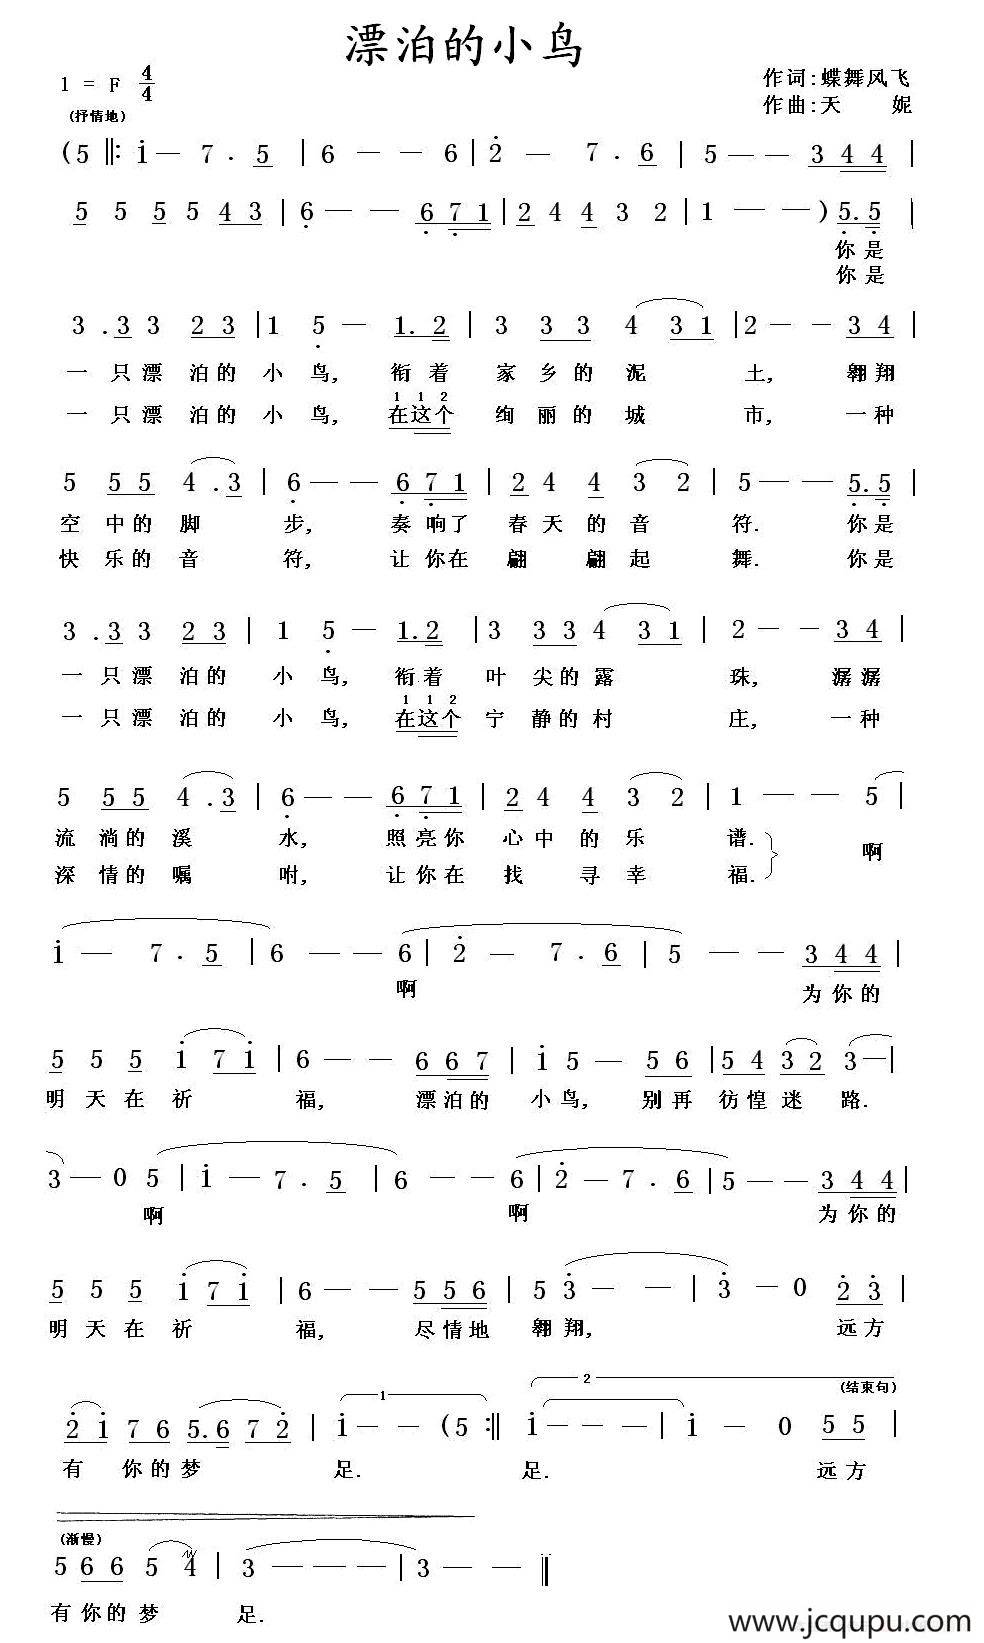 漂泊的小鸟
1 = F 4/4
作词:蝶舞风飞
(抒情地)
作曲:天 妮
(5 ‖: i — 7 . 5 | 6 — — 6 | 2 — 7 . 6 | 5 — — 3 4 4 |
5 5 5 5 4 3 | 6 — — 6 7 1 | 2 4 4 3 2 | 1 — — ) 5. 5 |
你是
你是
3 . 3 3 2 3 | 1 5 — 1. 2 | 3 3 3 4 3 1 | 2 — — 3 4 |
一只漂泊的小鸟, 衔着家乡的泥土, 翱翔
1 1 2
一只漂泊的小鸟, 在这个绚丽的城市, 一种
5 5 5 4 . 3 | 6 — — 6 7 1 | 2 4 4 3 2 | 5 — — 5. 5 |
空中的脚步, 奏响了春天的音符. 你是
快乐的音符, 让你在翩翩起舞. 你是
3 . 3 3 2 3 | 1 5 — 1. 2 | 3 3 3 4 3 1 | 2 — — 3 4 |
一只漂泊的小鸟, 衔着叶尖的露珠, 潺潺
1 1 2
一只漂泊的小鸟, 在这个宁静的村庄, 一种
5 5 5 4 . 3 | 6 — — 6 7 1 | 2 4 4 3 2 | 1 — — 5 |
流淌的溪水, 照亮你心中的乐谱. 啊
深情的嘱咐, 让你在找寻幸福.
i — 7 . 5 | 6 — — 6 | 2 — 7 . 6 | 5 — — 3 4 4 |
啊 为你的
5 5 5 i 7 i | 6 — — 6 6 7 | i 5 — 5 6 | 5 4 3 2 3 — |
明天在祈福, 漂泊的小鸟, 别再彷惶迷路.
3 — 0 5 | i — 7 . 5 | 6 — — 6 | 2 — 7 . 6 | 5 — — 3 4 4 |
啊 啊 为你的
5 5 5 i 7 i | 6 — — 5 5 6 | 5 3 — — | 3 — 0 2 3 |
明天在祈福, 尽情地翱翔, 远方
1 2 (结束句)
2 i 7 6 5. 6 7 2 | i — — (5 :‖ i — — — | i — 0 5 5 |
有你的梦足. 足. 远方
(渐慢)
5 6 6 5 4 | 3 — — — | 3 — — ‖
有你的梦足.
www.jcqupu.com